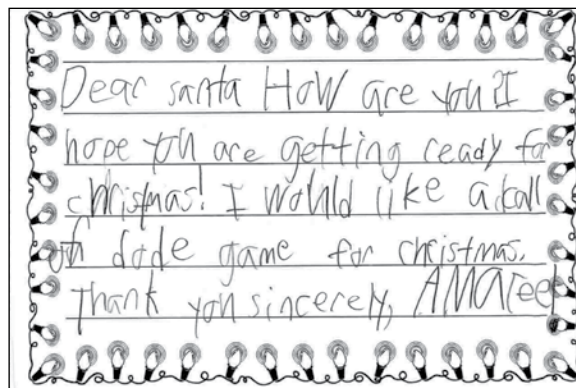 Dear santa HoW are you? I
hope you are getting ready for
christmas! I would like a call
of dode game for christmas.
Thank you sincerely,